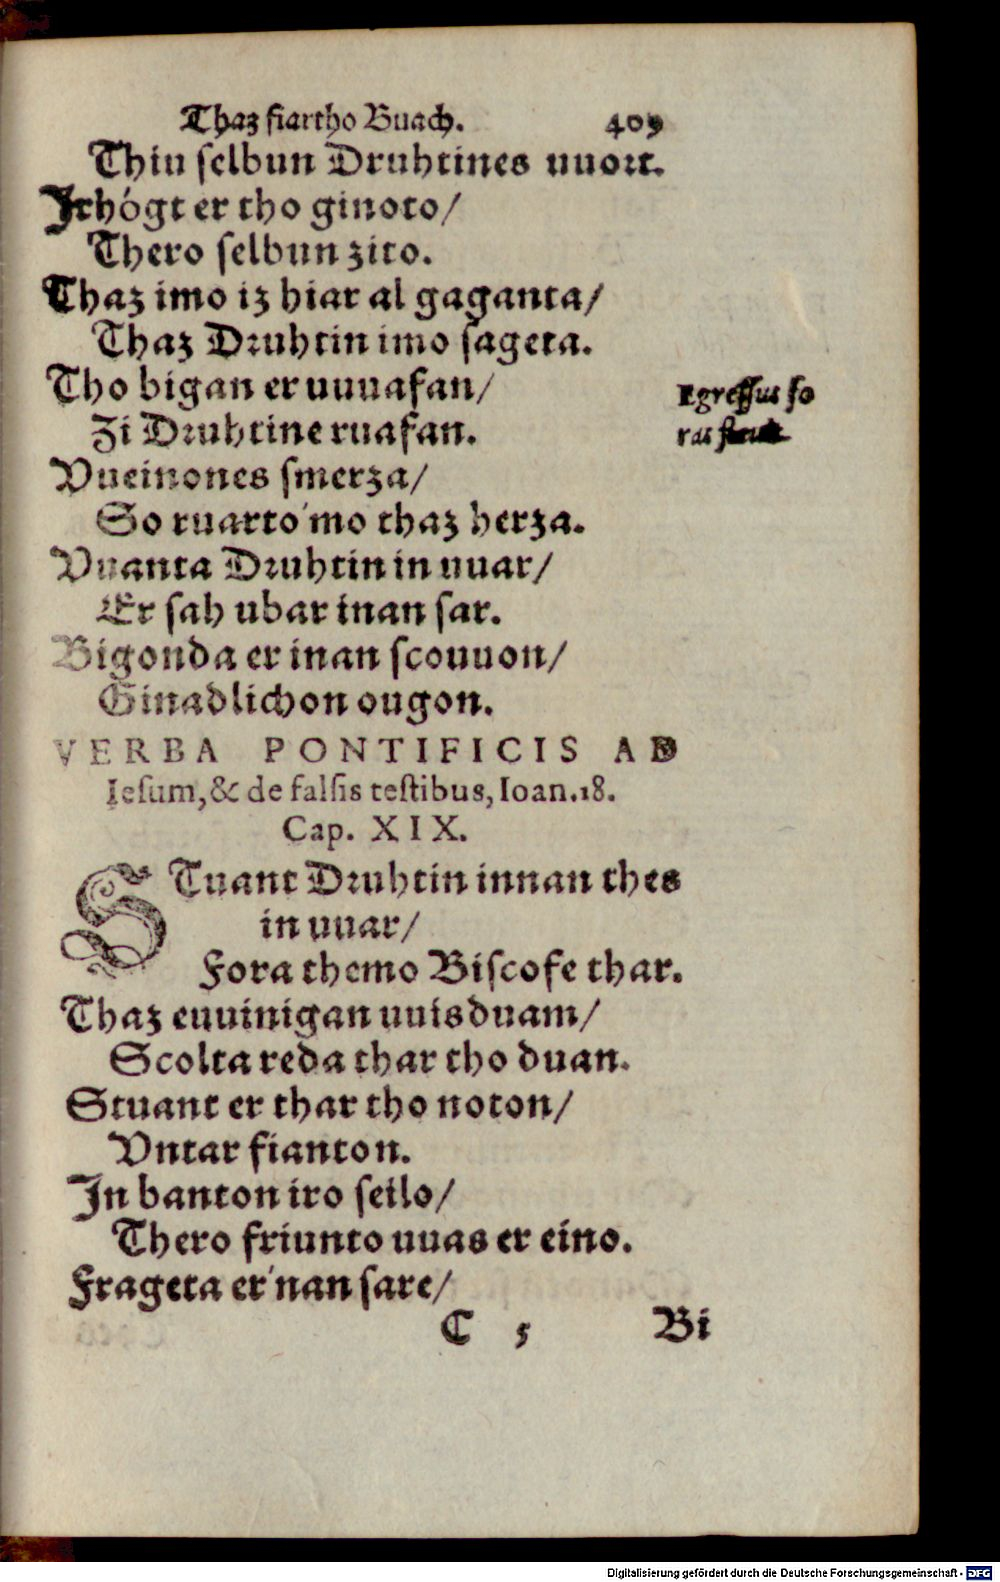 Thaz fiartho Buach. 409
Thiu selbun Druhtines uuort.
Irhógt er tho ginoto/
Thero selbun zito.
Thaz imo iz hiar al gaganta/
Thaz Druhtin imo sageta.
Tho bigan er uuuafan/
Egressus fo
Zi Druhtine ruafan.
ras fleuit
Vueinones smerza/
So ruarto'mo thaz herza.
Vuanta Druhtin in uuar/
Er sah ubar inan sar.
Bigonda er inan scouuon/
Ginadlichon ougon.
VERBA PONTIFICIS AD
Iesum, & de falsis testibus, Ioan.18.
Cap. XIX.
STuant Druhtin innan thes
in uuar/
Fora themo Biscofe thar.
Thaz euuinigan uuisduam/
Scolta reda thar tho duan.
Stuant er thar tho noton/
Vntar fianton.
In banton iro seilo/
Thero friunto uuas er eino.
Frageta er'nan sare/
C 5 Bi
Digitalisierung gefördert durch die Deutsche Forschungsgemeinschaft - DFG